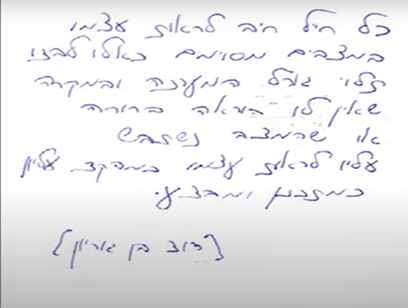 כל חיל חיב לראות עצמו
במצבים מסוימים כאלו לבדו
תלוי גורל המערכה ובמקרה
שאין לו הוראה ברורה
או שהמצב נשתבש
עליו לראות עצמו כמפקד עליון
כמתכנן ומבצע.
[דוד בן גוריון]